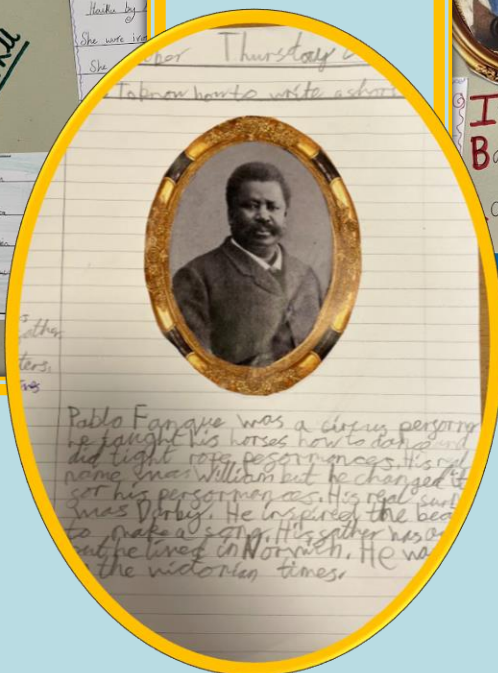 Haiku by
She wore
She
I
B
Thursday
To know how to write a shor
Pablo Fanque was a circus personr
he taught his horses how to danc and
did tight rope pesormances. His real
name was William but he changed it
sor his persormances. His real sur
was Darby. He inspired the bea
to make a song. His sather was
but he lived in Norwich. He wa
the victorian times.